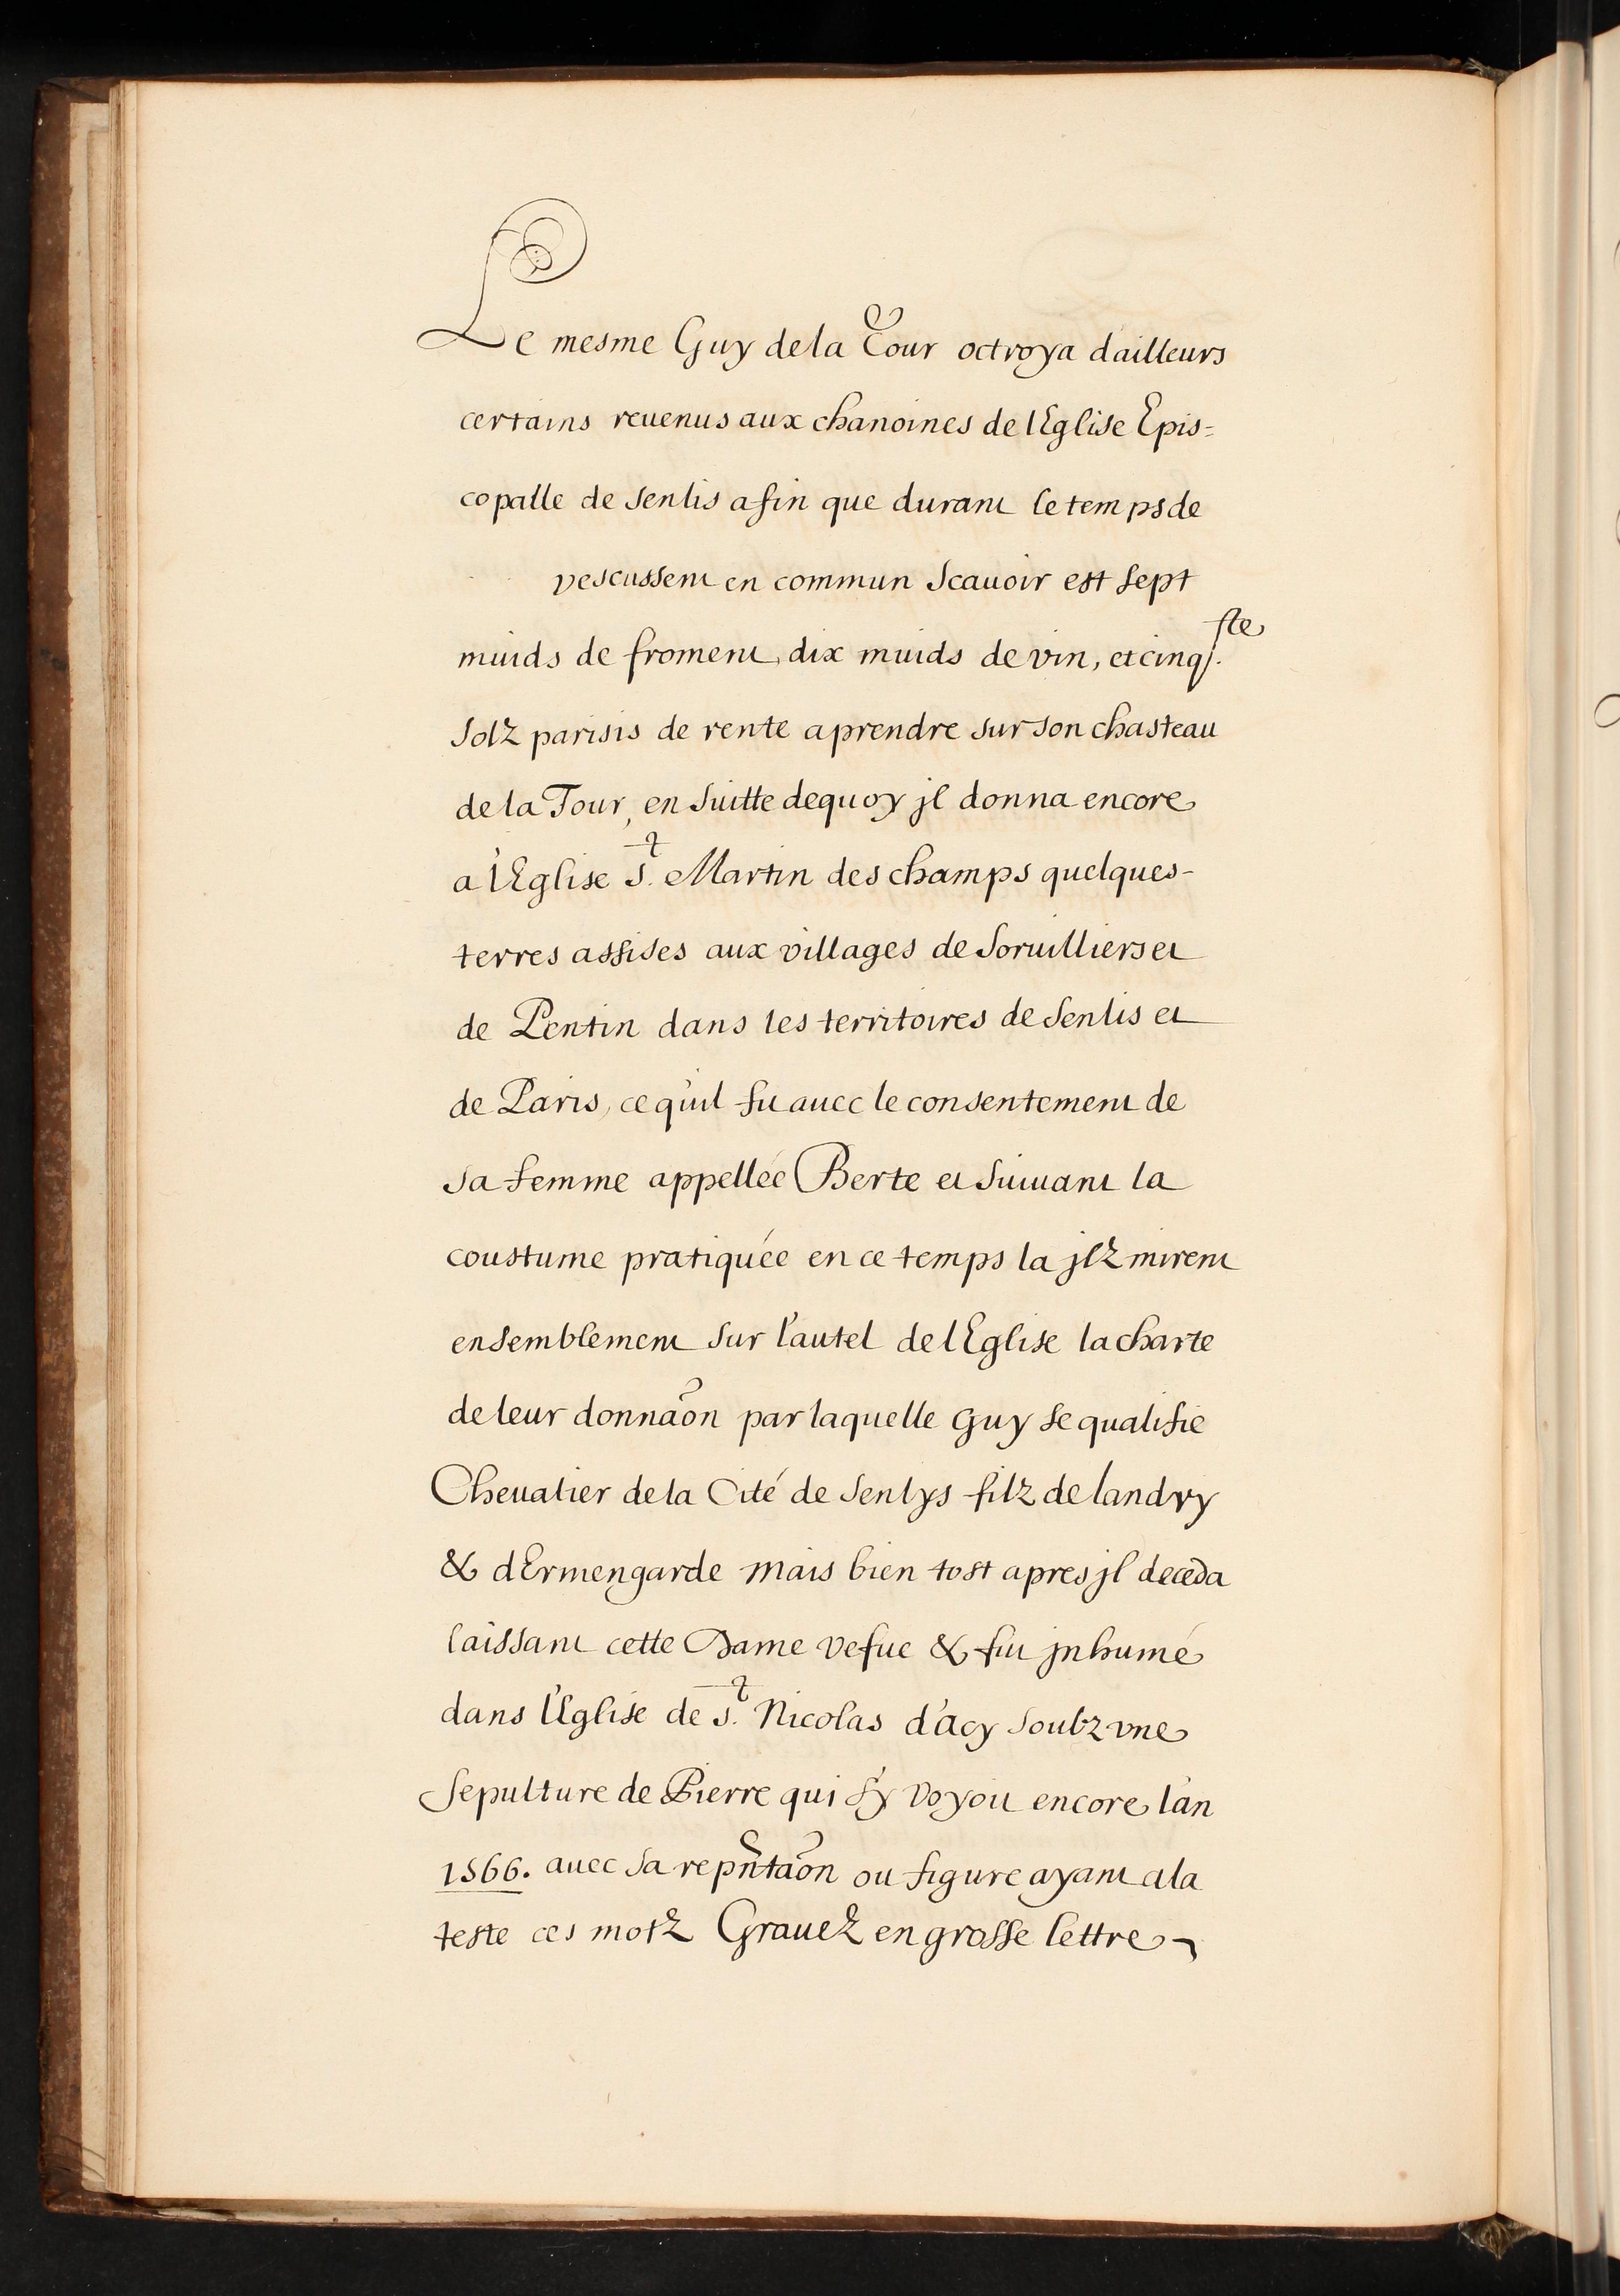 Le mesme Guy dela Tour octroya dailleurs
certains reuenus aux chanoines de lEglise Epis=
copalle de Senlis afin que durant le temps de
vescussent en commun Scauoir est sept
muids de froment, dix muids de vin, et cinq.ste
Solz parisis de rente aprendre sur son chasteau
de la Tour, en Suitte dequoy jl donna encore
a lEglise S.t Martin des champs quelques-
terres assises aux villages de Soruilliers et
de Pentin dans les territoires de Senlis et
de Paris, ce quil fit auec le consentement de
sa femme appellée Berte et Suiuant la
coustume pratiquée en ce temps la jlz mirent
ensemblement Sur l'autel de lEglise la charte
de leur donnaõn par laquelle Guy se qualifie
Cheualier de la Cité de Senlys filz de landry
& dErmengarde mais bien tost apres jl deceda
laissant cette Dame vefue & fut jnhumé
dans l'Eglise de S.t Nicolas d'Acy Soubz vne
Sepulture de Pierre qui s'y voyoit encore lan
1566. auec Sa repñtaõn ou figure ayant ala
teste ces motz Grauez en grosse lettre